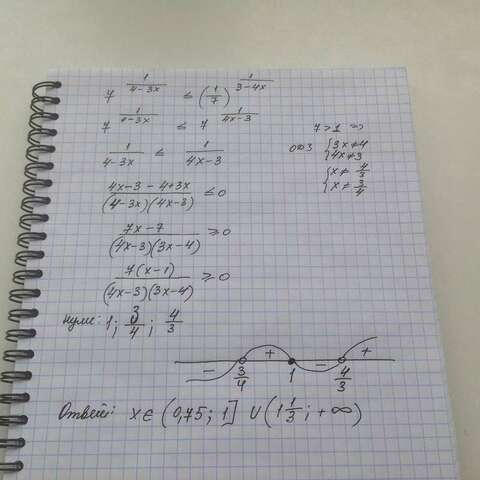 7^(1/(4-3x)) ≤ (1/7)^(1/(3-4x))
7^(1/(4-3x)) ≤ 7^(1/(4x-3))
7>1 ⇒
1/(4-3x) ≤ 1/(4x-3)
ОДЗ { 3x≠4
4x≠3
{ x≠ 4/3
x≠ 3/4
(4x-3-4+3x)/((4-3x)(4x-3)) ≤0
(7x-7)/((4x-3)(3x-4)) ≥0
7(x-1)/((4x-3)(3x-4)) ≥0
нули: 1; 3/4; 4/3
− + − +
3/4 1 4/3
Ответ: x∈(0,75; 1] ∪(1 1/3; +∞)